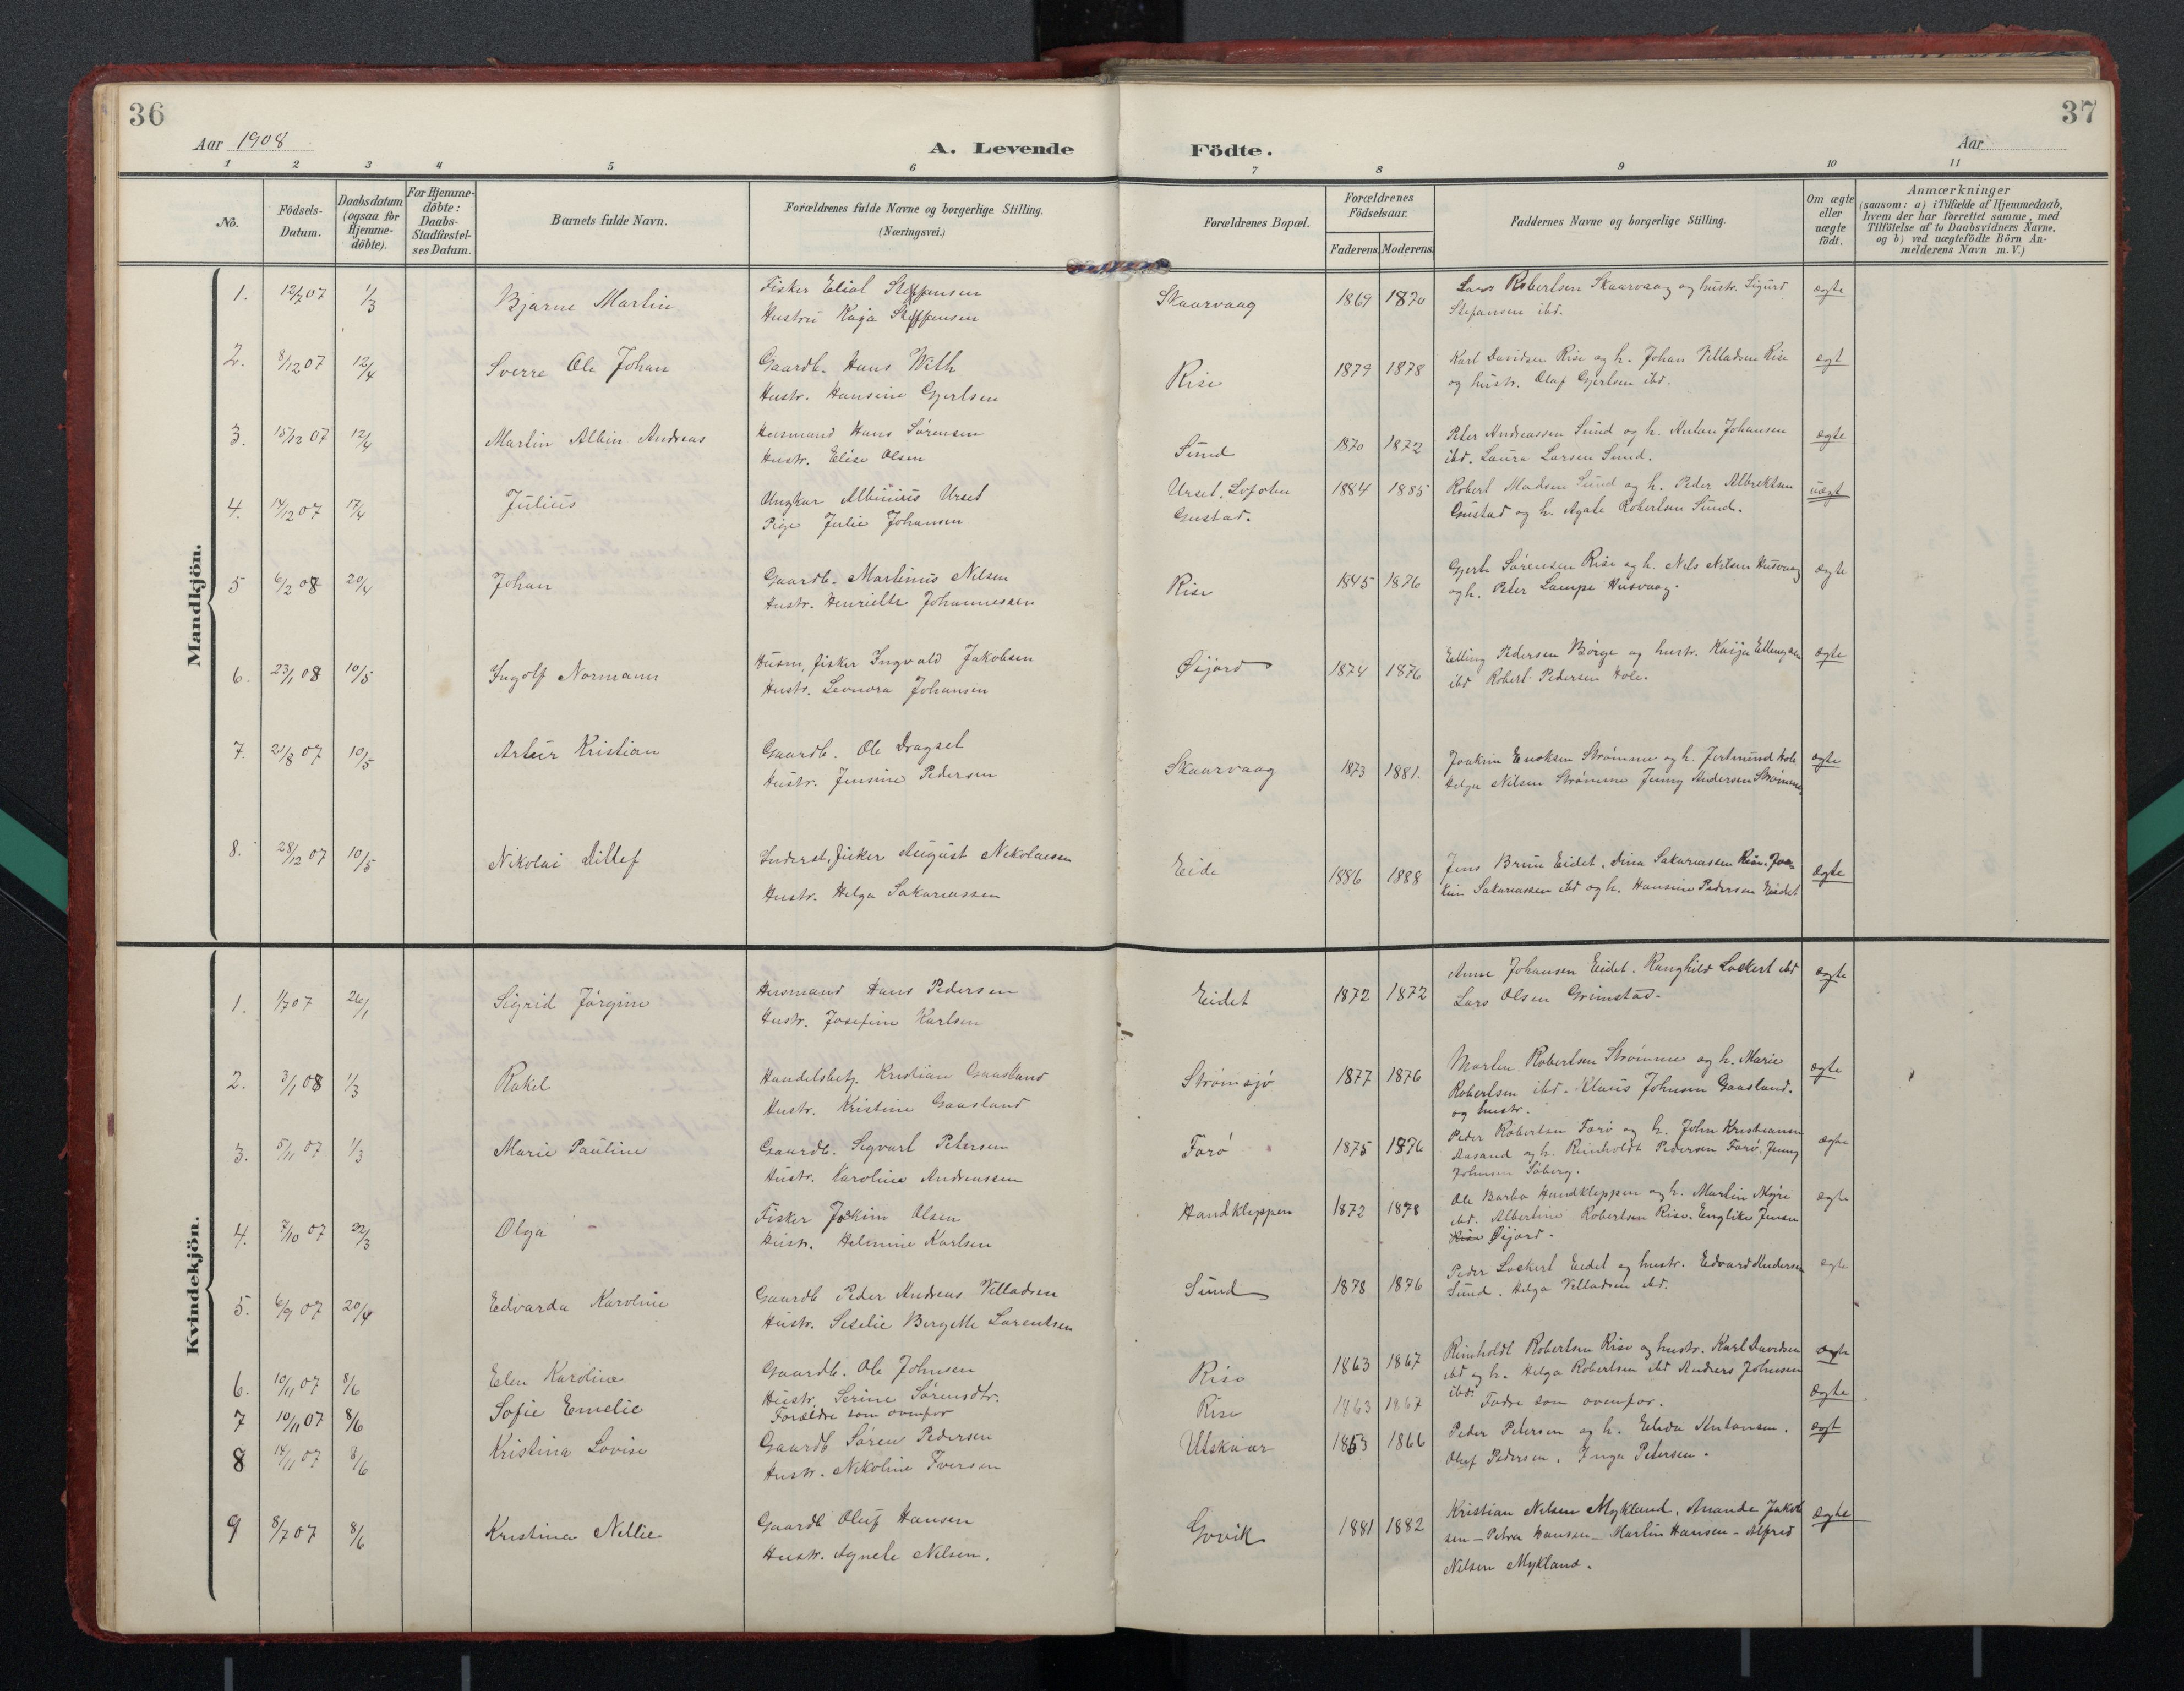 36
37
Aar 1908
A. Levende Födte.
Aar
1 2 3 4 5 6 7 8 9 10 11
No.
Födsels-Datum.
Daabsdatum (ogsaa for Hjemme-döbte).
For Hjemme-döbte: Daabs-Stadfæstel-ses Datum.
Barnets fulde Navn.
Forældrenes fulde Navne og borgerlige Stilling.
(Næringsvei.)
Forældrenes Bopæl.
Forældrenes Födselsaar.
Faderens. Moderens.
Faddernes Navne og borgerlige Stilling.
Om ægte eller uægte födt.
Anmærkninger
(saasom: a) i Tilfælde af Hjemmedaab,
hvem der har forrettet samme, med
Tilföielse af to Daabsvidners Navne,
og b) ved uægtefödte Börn An-
melderens Navn m. V.)
Mandkjön.
1. 12/7 07 1/3 Bjarne Martin Fisker Eliot Steffensen Skaarvaag 1869 1870 Lars Robertsen Skaarvaag og hustr. Sigurd ægte
Hustru Kaja Steffensen Stefansen ibd.
2. 8/12 07 12/4 Sverre Ole Johan Gaardb. Hans With Rise 1879 1878 Karl Davidsen Rise og h. Johan Villadsen Rise ægt
Hustr. Hansine Gjertsen og hustr. Olaf Gjertsen ibd.
3. 15/12 07 12/4 Martin Albin Andreas Husmand Hans Sörensen Sund 1870 1872 Peter Andreassen Sund og h. Anton Johansen ægte
Hustr. Elise Olsen ibd. Laura Larsen Sund.
4. 14/12 07 17/4 Julius Ungkar Albinius Urset Urset, Lofoten 1884 1885 Robert Madsen Sund og h. Peder Albrektsen uægt
Pige Julie Johansen Gustad. Gustad og h. Agate Robertsen Sund.
5 6/2 08 20/4 Johan Gaardb. Martinus Nilsen Rise 1845 1876 Gjert Sörensen Rise og h. Nels Nilsen Husvaag ægte
Hustr. Henriette Johannessen og h. Peter Lampe Husvaag.
6. 23/1 08 10/5 Ingolf Normann Husm, fisker Ingvald Jakobsen Øijord 1874 1876 Elling Pedersen Börge og hustr. Kaija Ellingsen ægte
Hustr. Leonora Johansen ibd Robert Pedersen Hole.
7. 21/8 07 10/5 Artur Kristian Gaardb. Ole Dragset Skaarvaag 1873 1881. Joakim Enoksen Strömme og h. Hole ægte
Hustr. Jensine Pedersen Helga Nilsen Strömme Jenny Andersen Strömme,
8. 28/12 07 10/5 Nikolai Ditlef Inderst, fisker August Nikolaisen Eide 1886 1888 Jens Brun Eidet, Dina Sakariassen Rise. Joa- ægte
Hustr. Helga Sakariassen kim Sakariassen ibd og h. Hansine Pedersen Eidet
Kvindekjön.
1. 1/7 07 26/1 Sigrid Jörgine Husmand Hans Pedersen Eidet 1872 1872 Anne Johansen Eidet. Ranghild Lockert ibd ægte
Hustr. Josefine Karlsen Lars Olsen Grimstad.
2. 3/1 08 1/3 Rakel Handelsbetj. Kristian Gaasland Strömsjö 1877 1876 Morten Robertsen Strömme og h. Marie ægte
Hustr. Kristine Gaasland Robertsen ibd. Klaus Johnsen Gaasland.
og hustr.
3. 5/11 07 1/3 Marie Pauline Gaardb. Sigvart Petersen Farö 1875 1876 Peder Robertsen Farö og h. John Kristiansen ægte
Hustr. Karoline Andreassen Aasand og h. Reinholdt Pedersen Farö. Jenny
Johnsen Söberg.
4. 7/10 07 22/3 Olga Fisker Joakim Olsen Handkleppen 1872 1878 Ole Barbo Handkleppen og h. Martin Myre ægte
Hustr. Helmine Karlsen ibd. Albertine Robertsen Rise. Englike Jensen
Rise Øijord.
5. 6/9 07 20/4 Edvarda Karoline Gaardb Peder Andreas Villadsen Sund 1878 1876 Peder Lockert Eidet og hustr. Edvard Andersen ægte
Hustr. Seselie Bergette Larentsen Sund. Helga Villadsen ibd.
6. 10/11 07 8/6 Elen Karoline Gaardb. Ole Johnsen Rise 1863 1867 Reinholdt Robertsen Rise og hustr. Karl Davidsen ægte
Hustr. Serine Sörensdtr. ibd og h. Helga Robertsen ibd Anders Johnsen
ibd.
7 10/11 07 8/6 Sofie Emelie Forældre som ovenfor Rise 1863 1867 Fadre som ovenfor. ægte
8 14/11 07 8/6 Kristina Lovise Gaardb Sören Pedersen Utskaar 1853 1866 Peder Petersen og h. Elida Antonsen. ægt
Hustr. Nikoline Iversen Oluf Pedersen, Inga Petersen.
9 8/7 07 8/6 Kristina Nellie Gaardb Oluf Hansen Govik 1881 1882 Kristian Nilsen Mykland, Ananda Jakob ægte
Hustr. Agnete Nilsen. sen - Petra Hansen - Martin Hansen - Alfred
Nilsen Mykland.